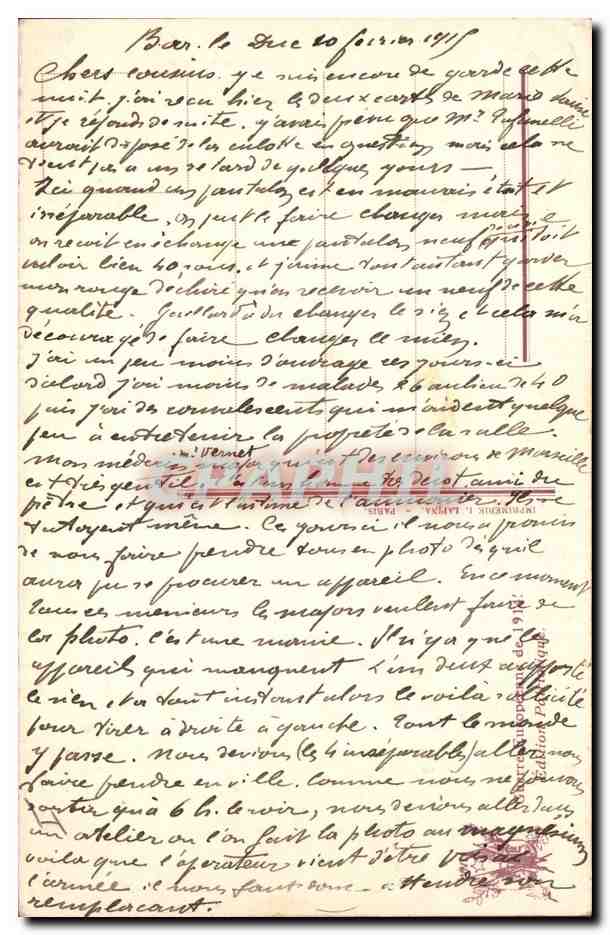 Bar-le Duc 10 février 1915
Chers cousins. je suis encore de garde cette
nuit. j'ai reçu hier les deux cartes de Marie
et je réponds de suite. j'avais pensé que Mr
aurait disposé de la culotte en question mais cela ne
vient pas a un retard de quelques jours —
Ici quand un pantalon est en mauvais état et
irréparable, on peut le faire changer mais
on reçoit en échange un pantalon neuf qui doit
valoir bien 40 sous, et j'aime tout autant garder
mon rouge déchiré qu'en recevoir un neuf de cette
qualité. Gaillard a du changer le sien et cela m'a
découragé de faire changer le mien.
J'ai un peu moins d'ouvrage ces jours-ci
d'abord j'ai moins de malades 26 au lieu de 40
puis j'ai des convalescents qui m'aident quelque
peu à entretenir la propreté de la salle.
mr Vernet
Mon médecin major qui est des environs de Marseille
est très gentil. c'est un homme très dévot, ami du
prêtre et qui est intime de l'aumonier. Ils se
tutoyent même. Ces jours-ci il nous a promis
de nous faire prendre tous en photo dès qu'il
aura pu se procurer un appareil. En ce moment
tous ces messieurs les majors veulent faire de
la photo. c'est une manie. Il n'y a que les
appareils qui manquent. L'un deux a apporté
le sien et a tout instant alors le voilà sollicité
pour tirer à droite à gauche. Tout le monde
y passe. Nous devions (les 4 inséparables) aller nous
faire prendre en ville. Comme nous ne pouvons
sortir qu'à 6 h. le soir, nous devions aller dans
un atelier où l'on fait la photo au magnésium
voila que l'opérateur vient d'être pris à
l'armée il nous faut donc attendre son
remplaçant.
IMPRIMERIE I. LAPINA. - PARIS
Guerre Européenne de 1914
Edition Patriotique